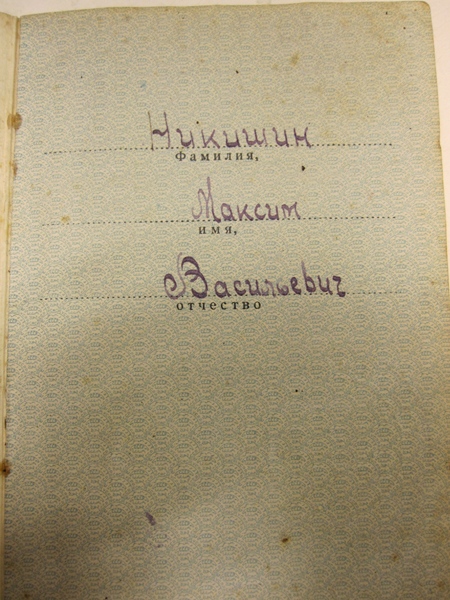 Никишин
Фамилия,
Максим
имя,
Васильевич
отчество